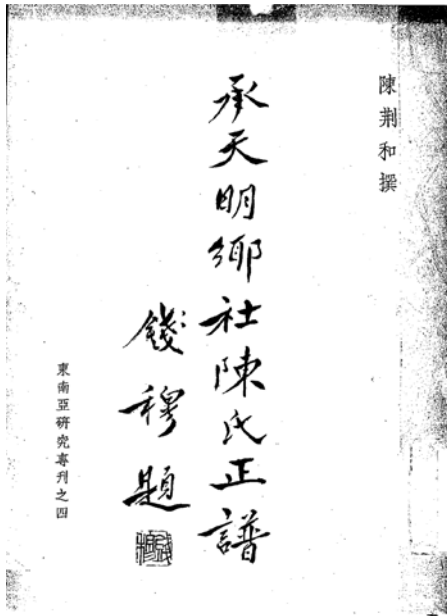 陳荆和撰
承天明鄉社陳氏正譜
錢穆題
東南亞研究專刊之四